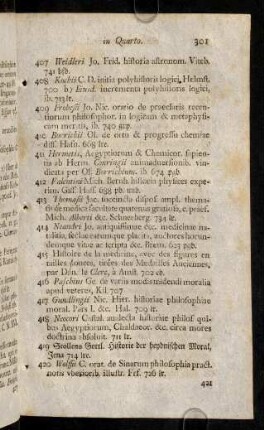 in Quarto. 301
407 Weidleri Jo. Frid. historia astronom. Viteb.
741 hfb.
408 Kochii C. D. initia polyhistoris logici, Helmst.
700 b) Eiusd. incrementa polyhistoris logici,
ib.
409 Frobesii Jo. Nic. oratio de processoris recen-
tiorum philosophor. in logicam & metaphysi-
cam meritis, ib. 740
410 Borrichii Ol. de ortu & progressu chemiae
diss. Hafn. 668 ltr.
411 Hermetis, Aegyptiorum & Chemicor. sapien-
tia ab Herm. Conringii animadversionib. vin-
dicata per Ol. Borrichium. ib 674 pub
412 Valentini Mich. Bernh. historia physices expe-
rim. Giss. Hass. 698 pb
413 Thomasii Jac. succincta dispos. ampl. thema-
tis de medico foenitate quaerens gratiosis, c. praef.
Mich. Alberti &c. Schneeberg. 734 lr.
414 Neandri Jo. antiquissimae &c. medicinae na-
talitia, sectae earumque placita, auctores horun-
demque vitae ac scripta &c. Brem. 623 pub.
415 Histoire de la medicine, avec des figures en
tailles douces, tirées des Medailles Anciennes,
par Dan. le Clerc, à Amst. 702 eb.
416 Paschius Ge. de variis modis tradendi moralia
apud veteres, Kil. 707.
417 Gundlingii Nic. Hier. historiae philosophiae
moral. Pars I. &c. Hal. 709 lr.
418 Neocori Csoal. analecta historiae philos. quibus
bas Aegyptiorum, Chaldaeor. &c. circa mores
doctrina absoluit. 711 lr.
419 Stollens Gottl. Historie der heydnischen Moral,
Jena 714 ltr.
420 Wolfii C. orat. de Sinarum philosophia pract.
notis vberiorib. illustr. Frf. 726 lr.
421